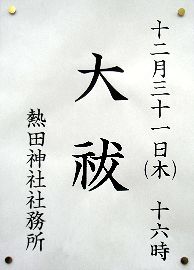 十二月三十一日(木) 十六時
大祓
熱田神社社務所